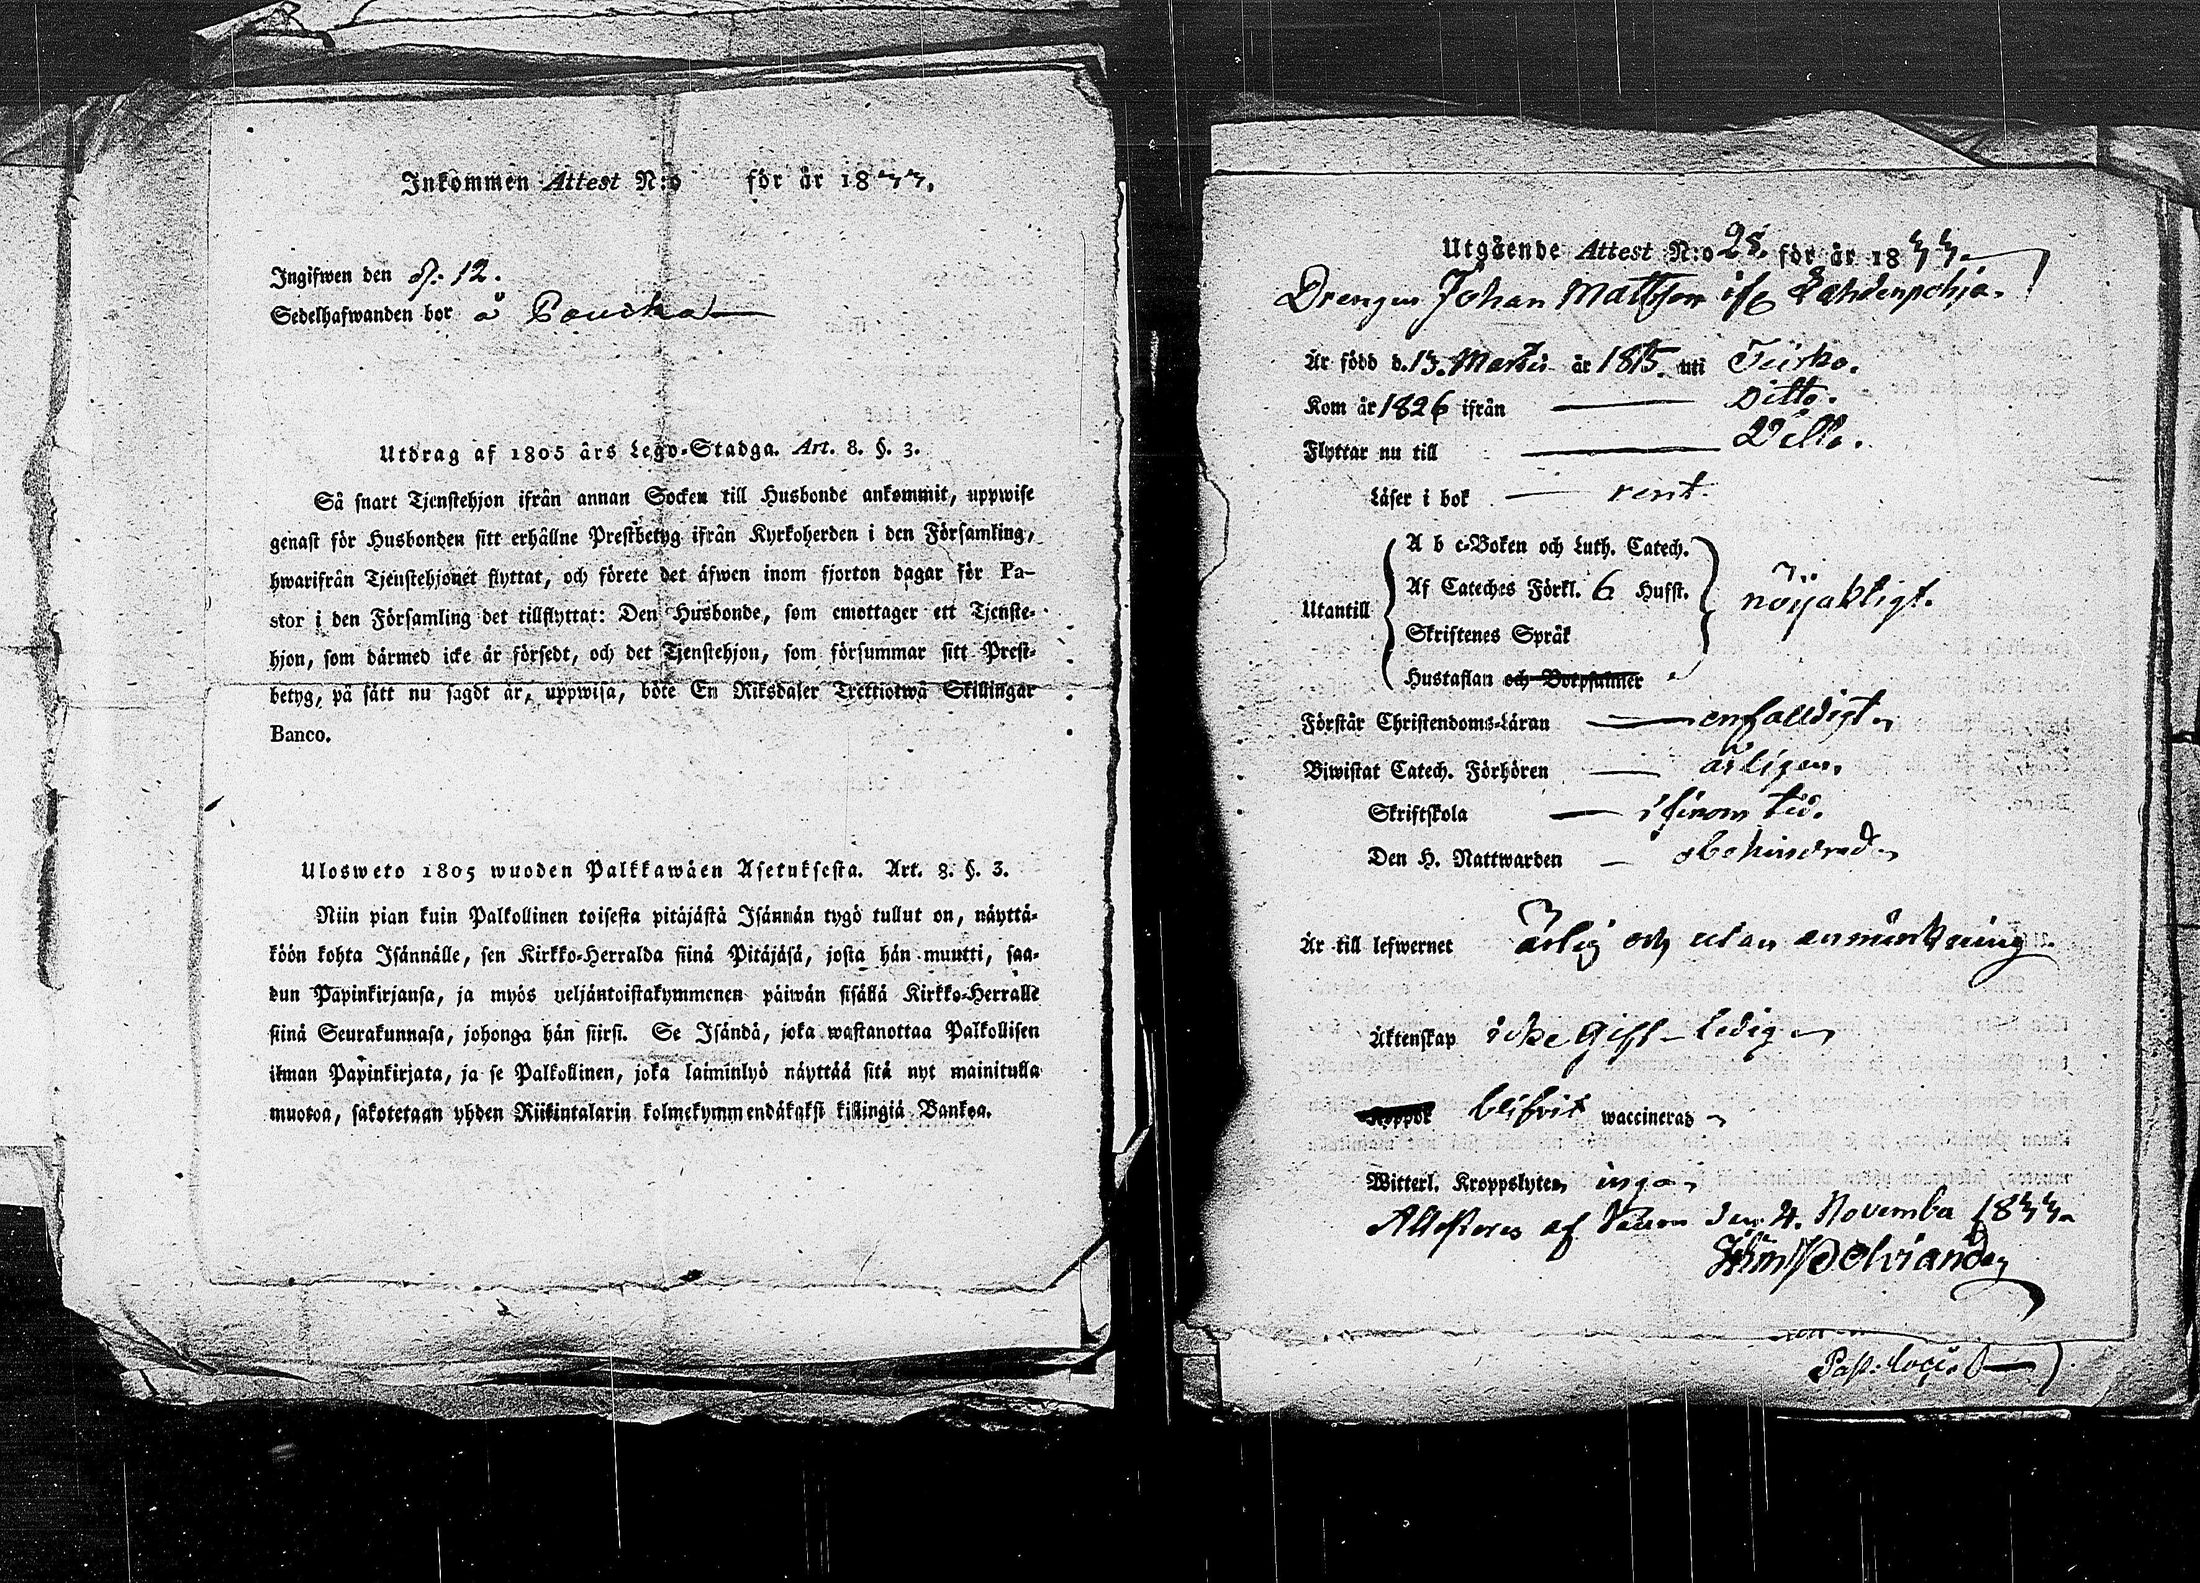 Inkommen Attest N:o för år 1833.
Ingifwen den 12.
Sedelhafwanden bor å
Utdrag af 1805 års Lego-Stadga. Art. 8. §. 3.
Så snart Tjenstehjon ifrån annan Socken till Husbonde ankommit, uppwise
genast för Husbonden sitt erhållne Prestbetyg ifrån Kyrkoherden i den Församling,
hwarifrån Tjenstehjonet flyttat, och förete det äfwen inom fjorton dagar för Pa-
stor i den Församling det tillflyttat: Den Husbonde, som emottager ett Tjenste-
hjon, som därmed icke är försedt, och det Tjenstehjon, som försummar sitt Prest-
betyg, på sätt nu sagdt är, uppwisa, böte En Riksdaler Trettiotwå Skillingar
Banco.
Ulosweto 1805 wuoden Palkkawäen Asetuksesta. Art. 8. §. 3.
Niin pian kuin Palkollinen toisesta pitäjästä Isännän tygö tullut on, näyttä-
köön kohta Isännälle, sen Kirkko-Herralda siinä Pitäjäsä, josta hän muutti, saa-
dun Papinkirjansa, ja myös neljäntoistakymmenen päiwän sisällä Kirkko-Herralle
siinä Seurakunnasa, johonga hän siirsi. Se Isändä, joka wastanottaa Palkollisen
ilman Papinkirjata, ja se Palkollinen, joka laiminlyö näyttää sitä nyt mainitulla
muotoa, sakotetaan yhden Riikintalarin kolmekymmendäkaksi killingiä Bankoa.
Utgående Attest N:o 28. för år 1833.
Drengen Johan Mattsson ifr Lahdenpohja.
Är född d. 13. Martii år 1815. uti Tiirko.
Kom år 1826 ifrån — Ditto.
Flyttar nu till — Ditto.
Läser i bok — rent.
A b c-Boken och Luth. Catech.
Af Cateches Förkl. 6 Hufst.
Utantill nöijaktigt.
Skriftenes Språk
Hustaflan och Botpsalmer
Förstår Christendoms-Läran — enfaldigt
Biwistat Catech. Förhören — årligen.
Skriftskola — i sinom tid.
Den H. Nattwarden — obehindrad
Är till lefwernet ärlig och utan anmärkning
Äktenskap icke gift - ledig
Koppor blifvit waccinerad
Witterl. Kroppslyten inga
Attesteras af den 4. November 1833
Past: loci.